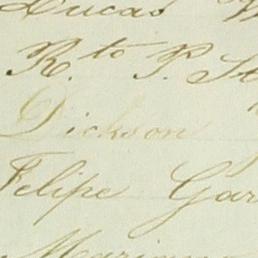 Lucas
R.to P. St
Dickson
Felipe Gar